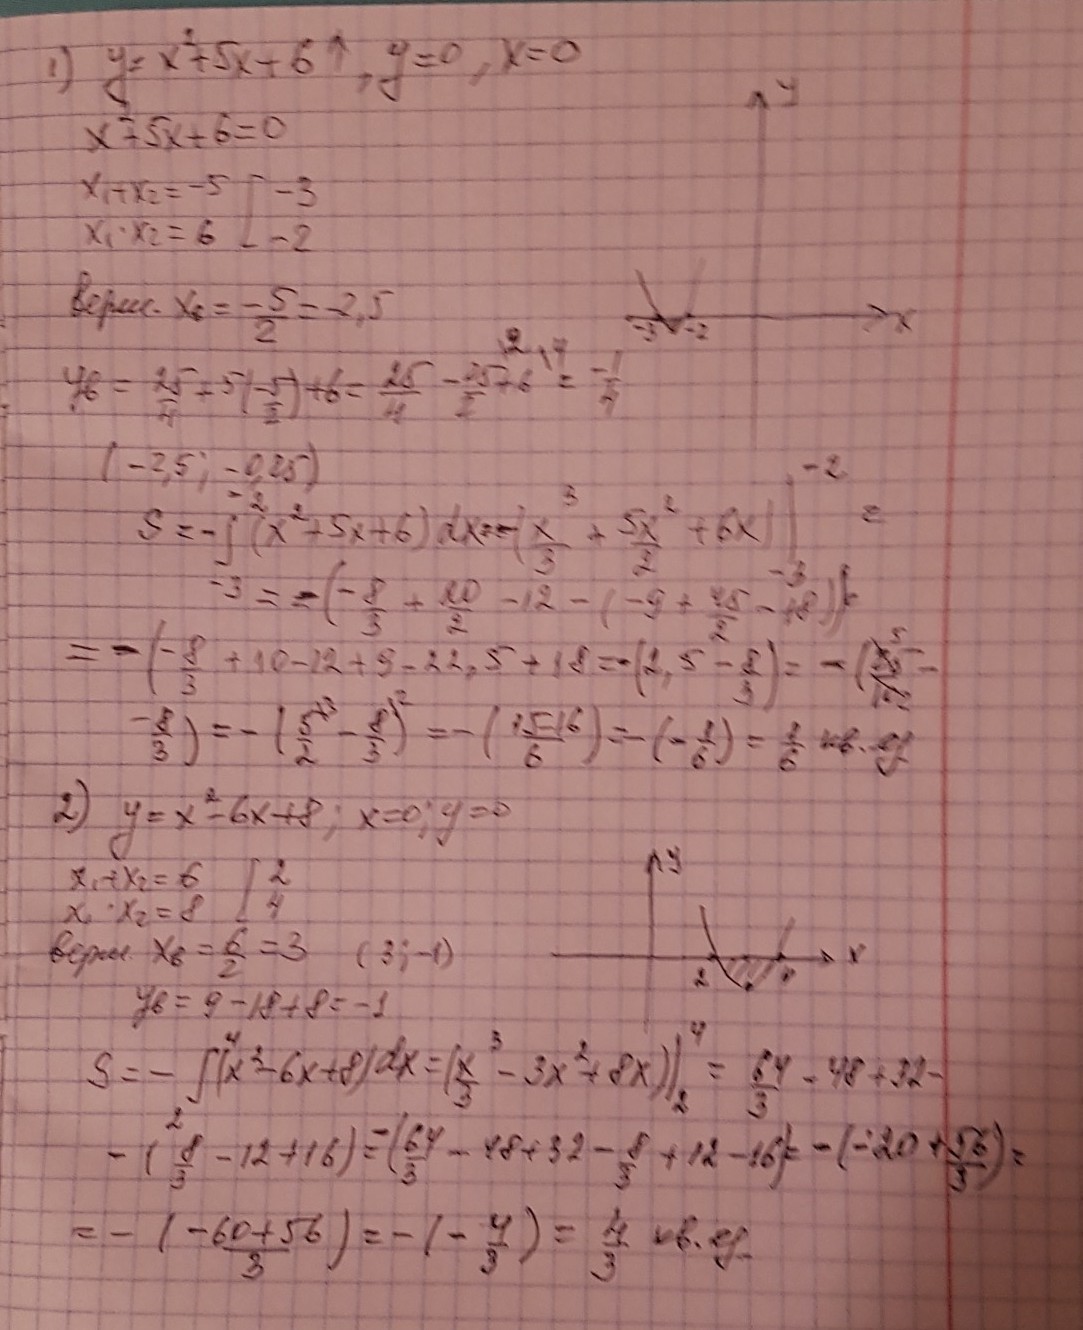 1) y=x²+5x+6↑, y=0, x=0
x²+5x+6=0
x₁+x₂=-5 [ -3
x₁·x₂=6 [ -2
верш. xв = -5/2 = -2,5
yв = 25/4 + 5(-5/2)+6 = 25/4 - 25/2 + 6 = -1/4
(-2,5; -0,25)
y
x
-3 -2
S = -∫₋₃⁻² (x²+5x+6)dx = -(x³/3 + 5x²/2 + 6x)|₋₃⁻² =
= -(-8/3 + 20/2 - 12 - (-9 + 45/2 - 18)) =
= -(-8/3 + 10 - 12 + 9 - 22,5 + 18 = -(2,5 - 8/3) = -(
-8/3) = -(5/2 - 8/3) = -(15-16/6) = -(-1/6) = 1/6 кв. ед
2) y=x²-6x+8; x=0; y=0
x₁+x₂=6 [ 2
x₁·x₂=8 [ 4
верш. xв = 6/2 = 3 (3; -1)
yв = 9-18+8 = -1
y
x
2 4
S = -∫₂⁴ (x²-6x+8)dx = (x³/3 - 3x² + 8x)|₂⁴ = 64/3 - 48 + 32 -
- (8/3 - 12 + 16) = -(64/3 - 48 + 32 - 8/3 + 12 - 16) = -(-20 + 56/3) =
= -(-60+56/3) = -(-4/3) = 4/3 кв. ед